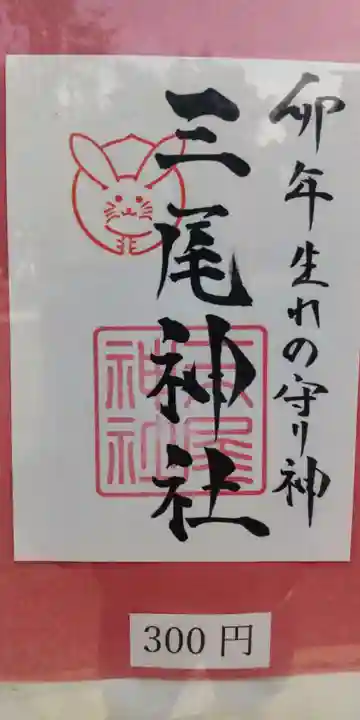 卯年生れの守り神
三尾神社
三尾
神社
300円